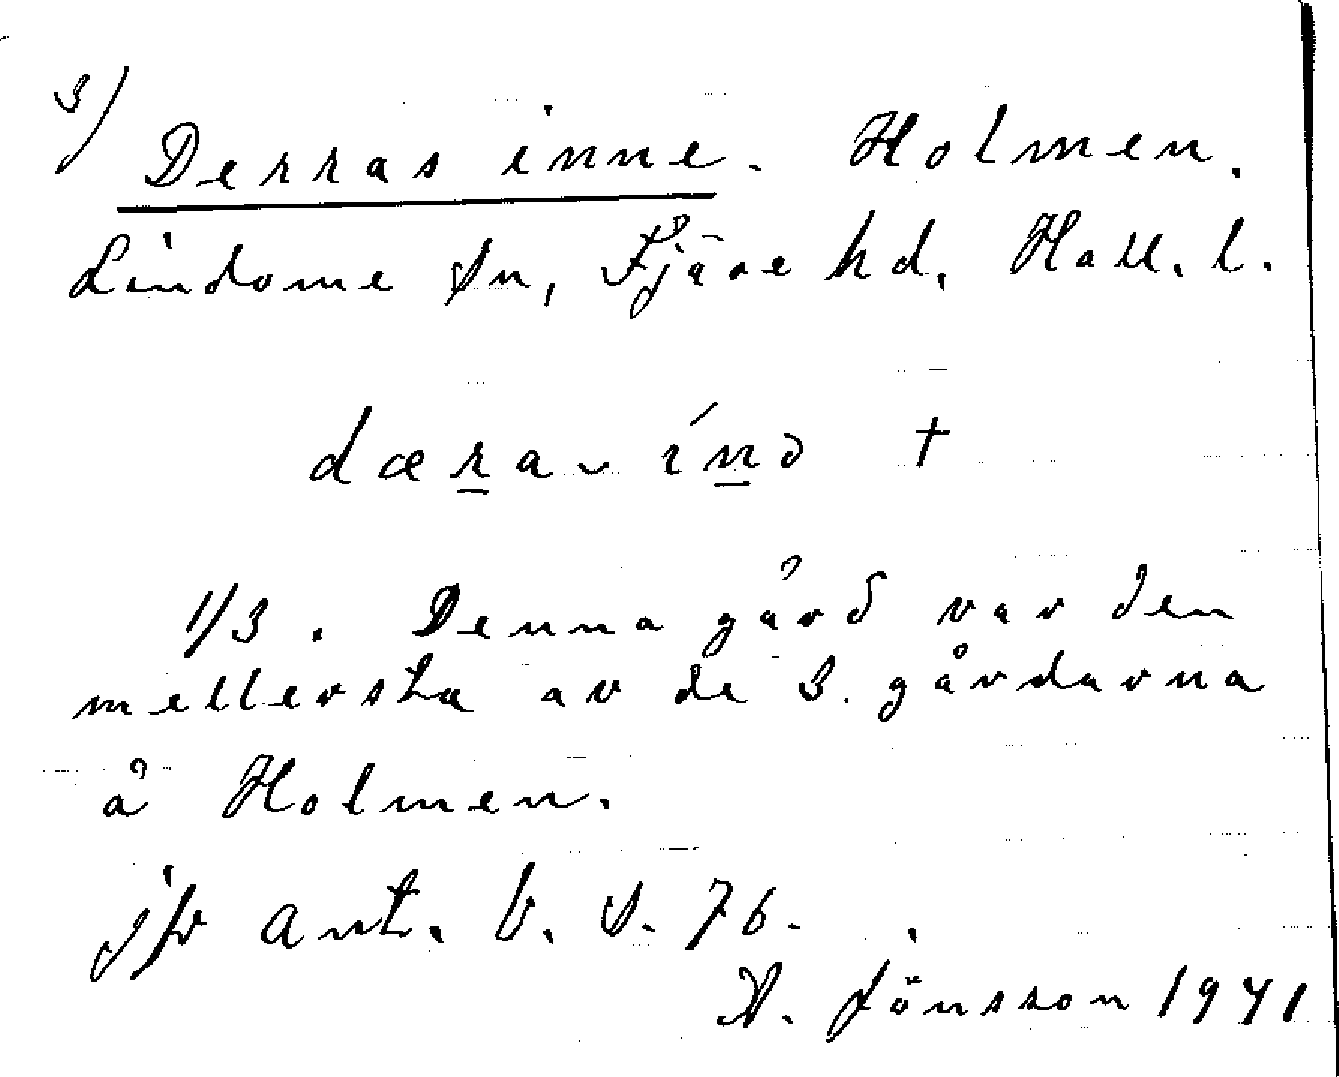 3) Derras inne. Holmen.
Lindome sn, Fjäre hd. Hall. l.
dæra‿ ínə †
1/3. Denna gård var den
mellersta av de 3. gårdarna
å Holmen.
jfr ant. b. s. 76.
A. Jönsson 1941